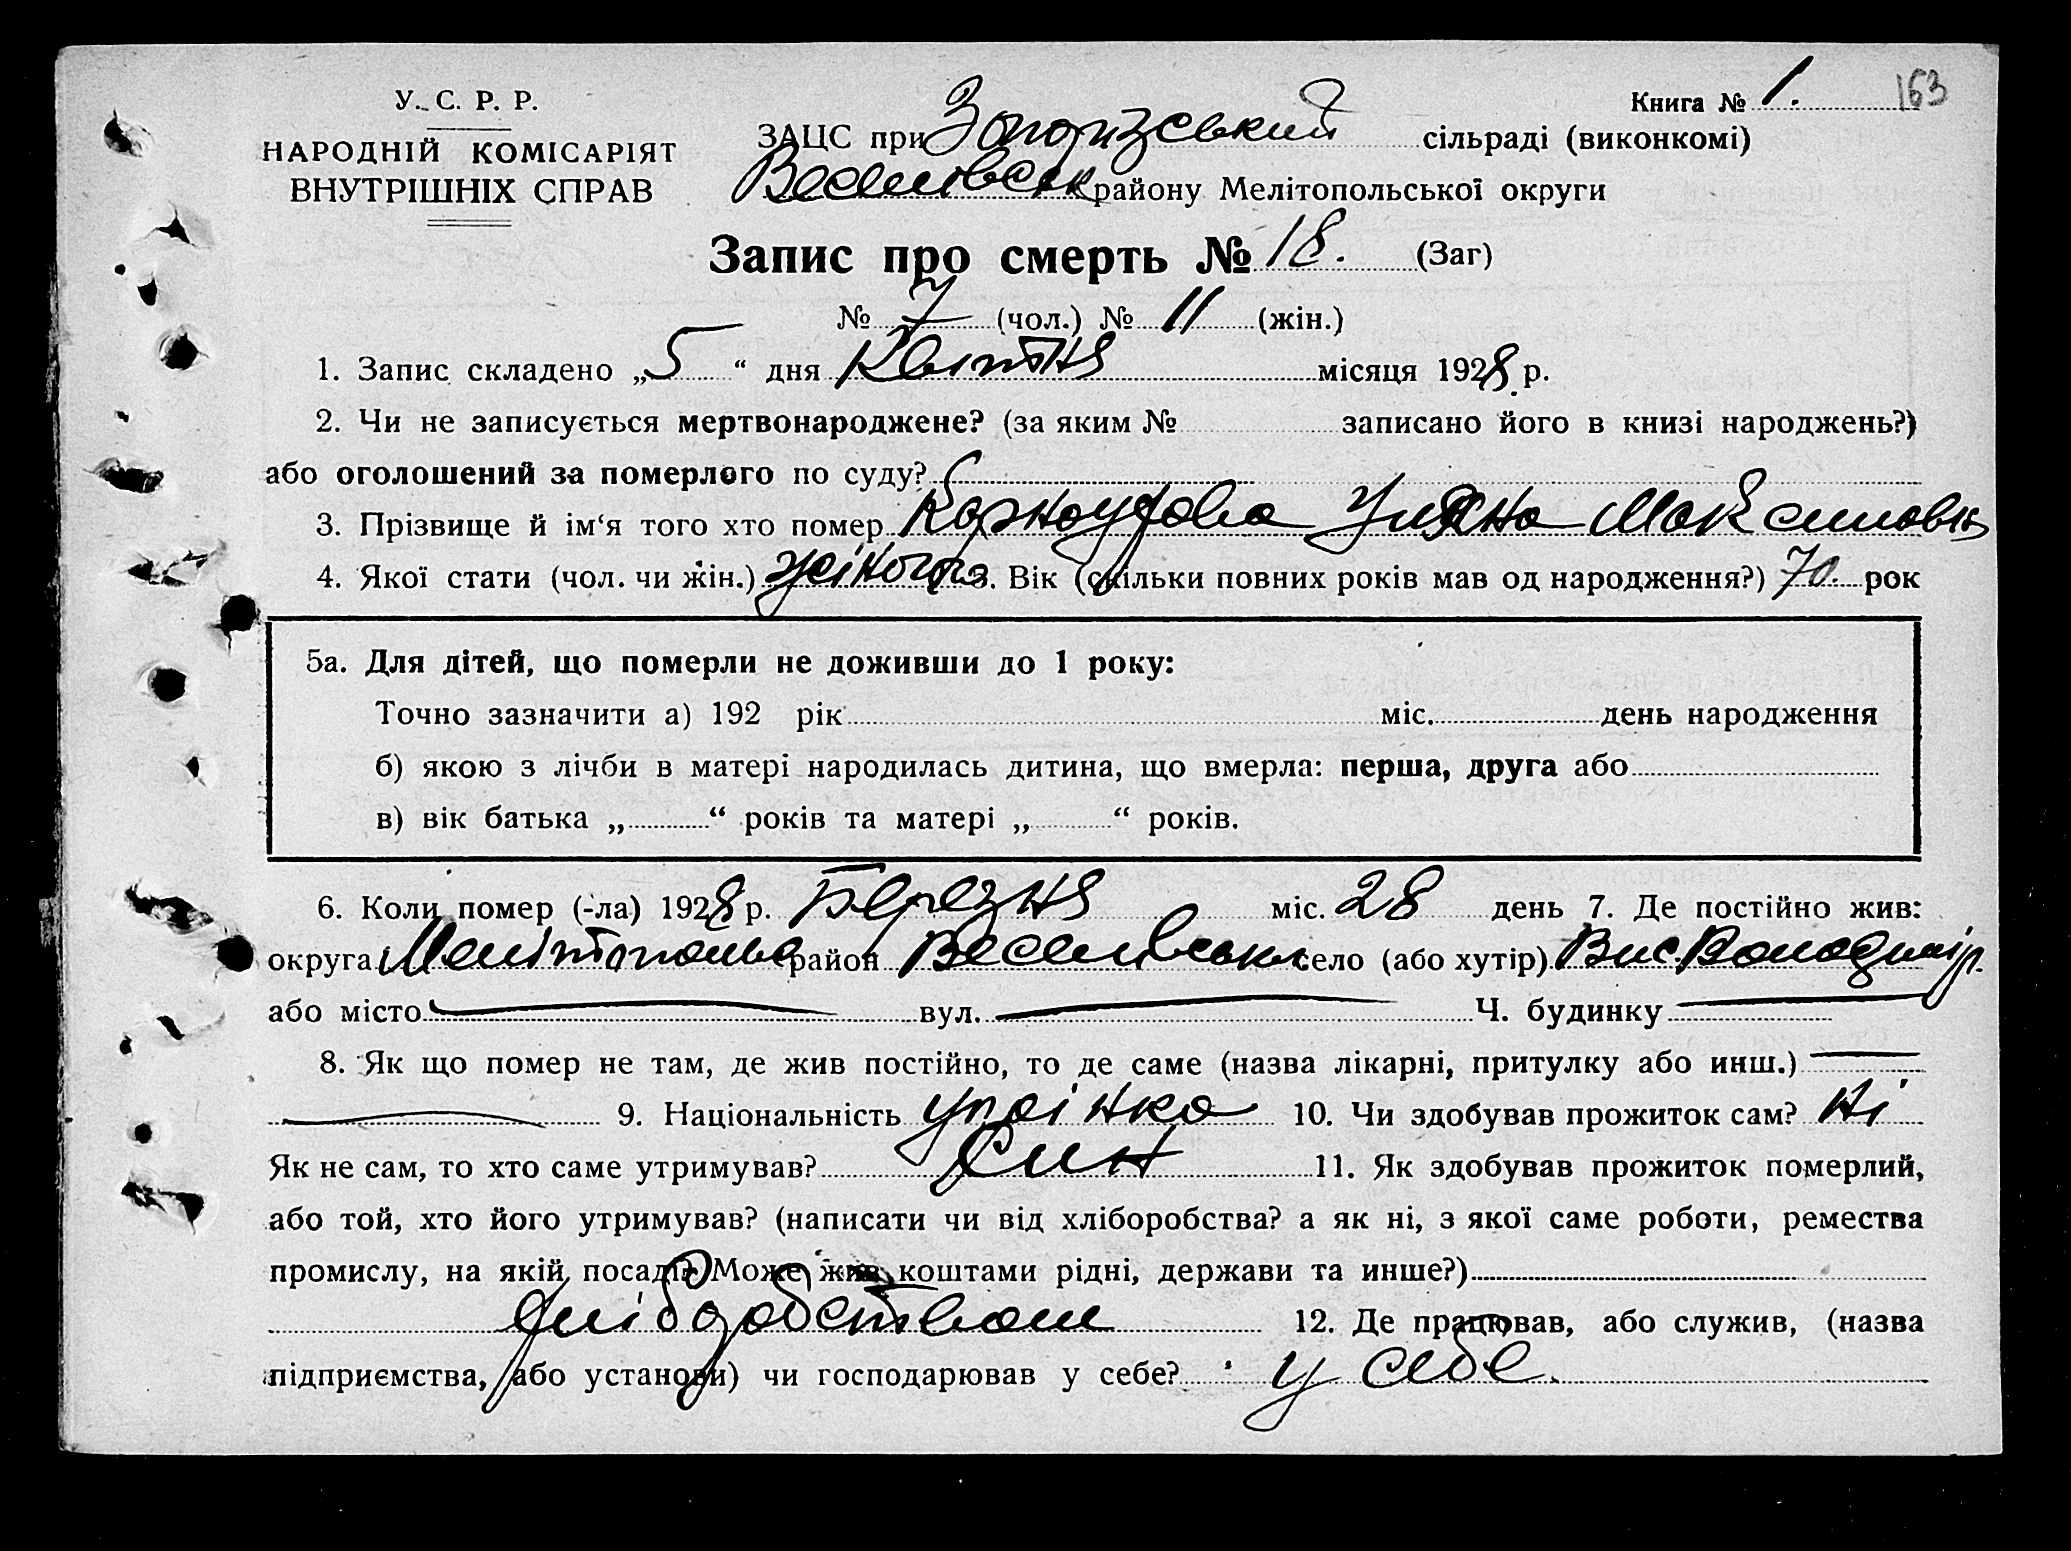 У. С. Р. Р.
НАРОДНІЙ КОМІСАРІЯТ
ВНУТРІШНІХ СПРАВ
Книга № 1. 163
ЗАЦС при сільраді (виконкомі)
Веселовськ району Мелітопольської округи
Запис про смерть № 18. (Заг)
№ 7 (чол.) № 11 (жін.)
1. Запис складено „5“ дня Квітня місяця 1928 р.
2. Чи не записується мертвонароджене? (за яким № записано його в книзі народжень?)
або оголошений за померлого по суду?
3. Прізвище й ім‘я того хто помер Карнаухова Уляна Максимовна
4. Якої стати (чол. чи жін.) жіноча 5. Вік (скільки повних років мав од народження?) 70. рок
5а. Для дітей, що померли не доживши до 1 року:
Точно зазначити а) 192 рік міс. день народження
б) якою з лічби в матері народилась дитина, що вмерла: перша, друга або
в) вік батька „ “ років та матері „ “ років.
6. Коли помер (-ла) 1928 р. Березня міс. 28 день 7. Де постійно жив:
округа Мелітополь район Веселивськ село (або хутір) Вис. Володимір.
або місто вул. Ч. будинку
8. Як що помер не там, де жив постійно, то де саме (назва лікарні, притулку або инш.)
9. Національність украінка 10. Чи здобував прожиток сам? Ні
Як не сам, то хто саме утримував? Син 11. Як здобував прожиток померлий,
або той, хто його утримував? (написати чи від хліборобства? а як ні, з якої саме роботи, ремества
промислу, на якій посаді? Може жив коштами рідні, держави та инше?)
хліборобством 12. Де працював, або служив, (назва
підприємства, або установи) чи господарював у себе? у себе.